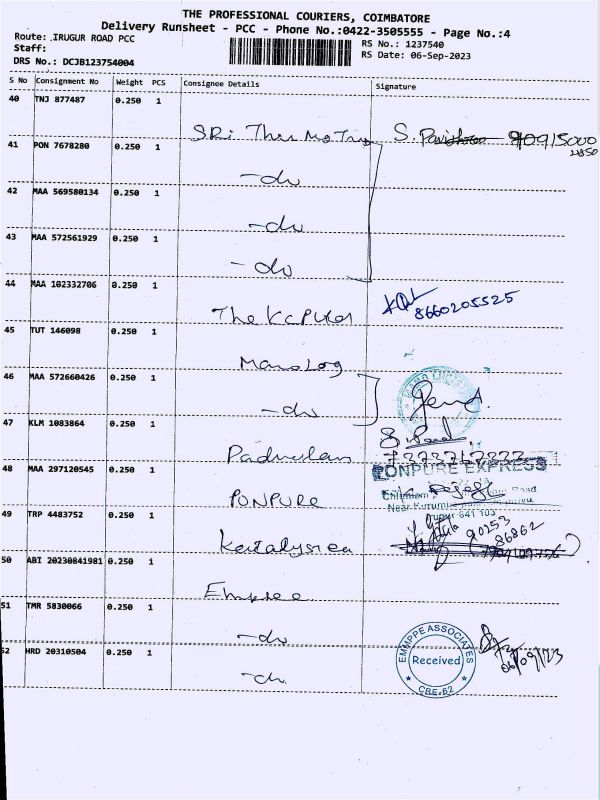 THE PROFESSIONAL COURIERS, COIMBATORE
Delivery Runsheet - PCC - Phone No.:0422-3505555 - Page No.:4
Route: IRUGUR ROAD PCC
RS No.: 1237540
Staff:
RS Date: 06-Sep-2023
DRS No.: DCJB123754004
S No Consignment No Weight PCS Consignee Details Signature
40 TNJ 877487 0.250 1
SRi
S.
41 PON 7678280 0.250 1
-do
42 MAA 569580134 0.250 1
-do
43 MAA 572561929 0.250 1
-do
44 MAA 102332706 0.250 1
The
8660205525
45 TUT 146098 0.250 1
46 MAA 572660426 0.250 1
-do
47 KLM 1083864 0.250 1
48 MAA 297120545 0.250 1
PONPURE
PONPURE EXPRESS
Near
641 103
49 TRP 4483752 0.250 1
90253
86862
50 ABI 20230841981 0.250 1
51 TMR 5830066 0.250 1
-do
52 HRD 20310504 0.250 1
-do
EMMPPE ASSOCIATES
Received
CBE-62
06/09/23